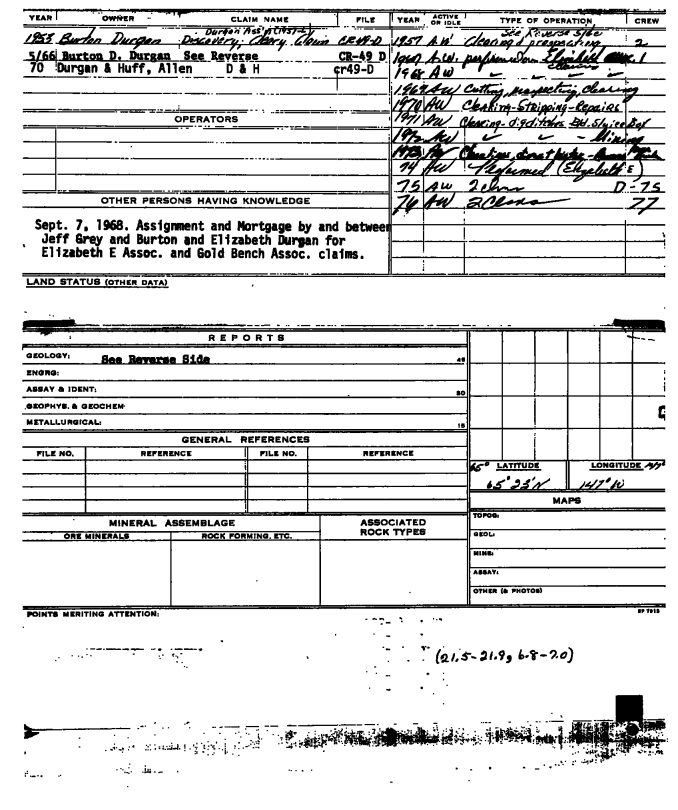 YEAR OWNER CLAIM NAME FILE YEAR ACTIVE OR IDLE TYPE OF OPERATION CREW
Durgan Ass'n
See Reverse Side
1953 Burton Durgan Discovery, CR 49-D 1957 A.W. Clearing & prospecting 2
5/66 Burton D. Durgan See Reverse CR-49 D performed on Elizabeth 1
70 Durgan & Huff, Allen D & H cr49-D 1968 AW
1969 AW Cutting, prospecting, clearing
1970 AW Clearing-Stripping-Repairs
OPERATORS
1971 AW Clearing-dig ditches Bld. Sluice Box
1972 AW - Mining
74 AW Performed (Elizabeth E)
75 AW 2 D-75
OTHER PERSONS HAVING KNOWLEDGE
76 AW 2 77
Sept. 7, 1968. Assignment and Mortgage by and between
Jeff Grey and Burton and Elizabeth Durgan for
Elizabeth E Assoc. and Gold Bench Assoc. claims.
LAND STATUS (OTHER DATA)
REPORTS
GEOLOGY: See Reverse Side 45
ENGRG:
ASSAY & IDENT: 80
GEOPHYS. & GEOCHEM
METALLURGICAL: 15
GENERAL REFERENCES
FILE NO. REFERENCE FILE NO. REFERENCE
65° LATITUDE LONGITUDE 147°
65°23'N 147°W
MAPS
MINERAL ASSEMBLAGE ASSOCIATED ROCK TYPES
ORE MINERALS ROCK FORMING, ETC.
TOPOG:
GEOL:
MINE:
ASSAY:
OTHER (& PHOTOS)
POINTS MERITING ATTENTION:
(21.5-21.9, 6.8-7.0)